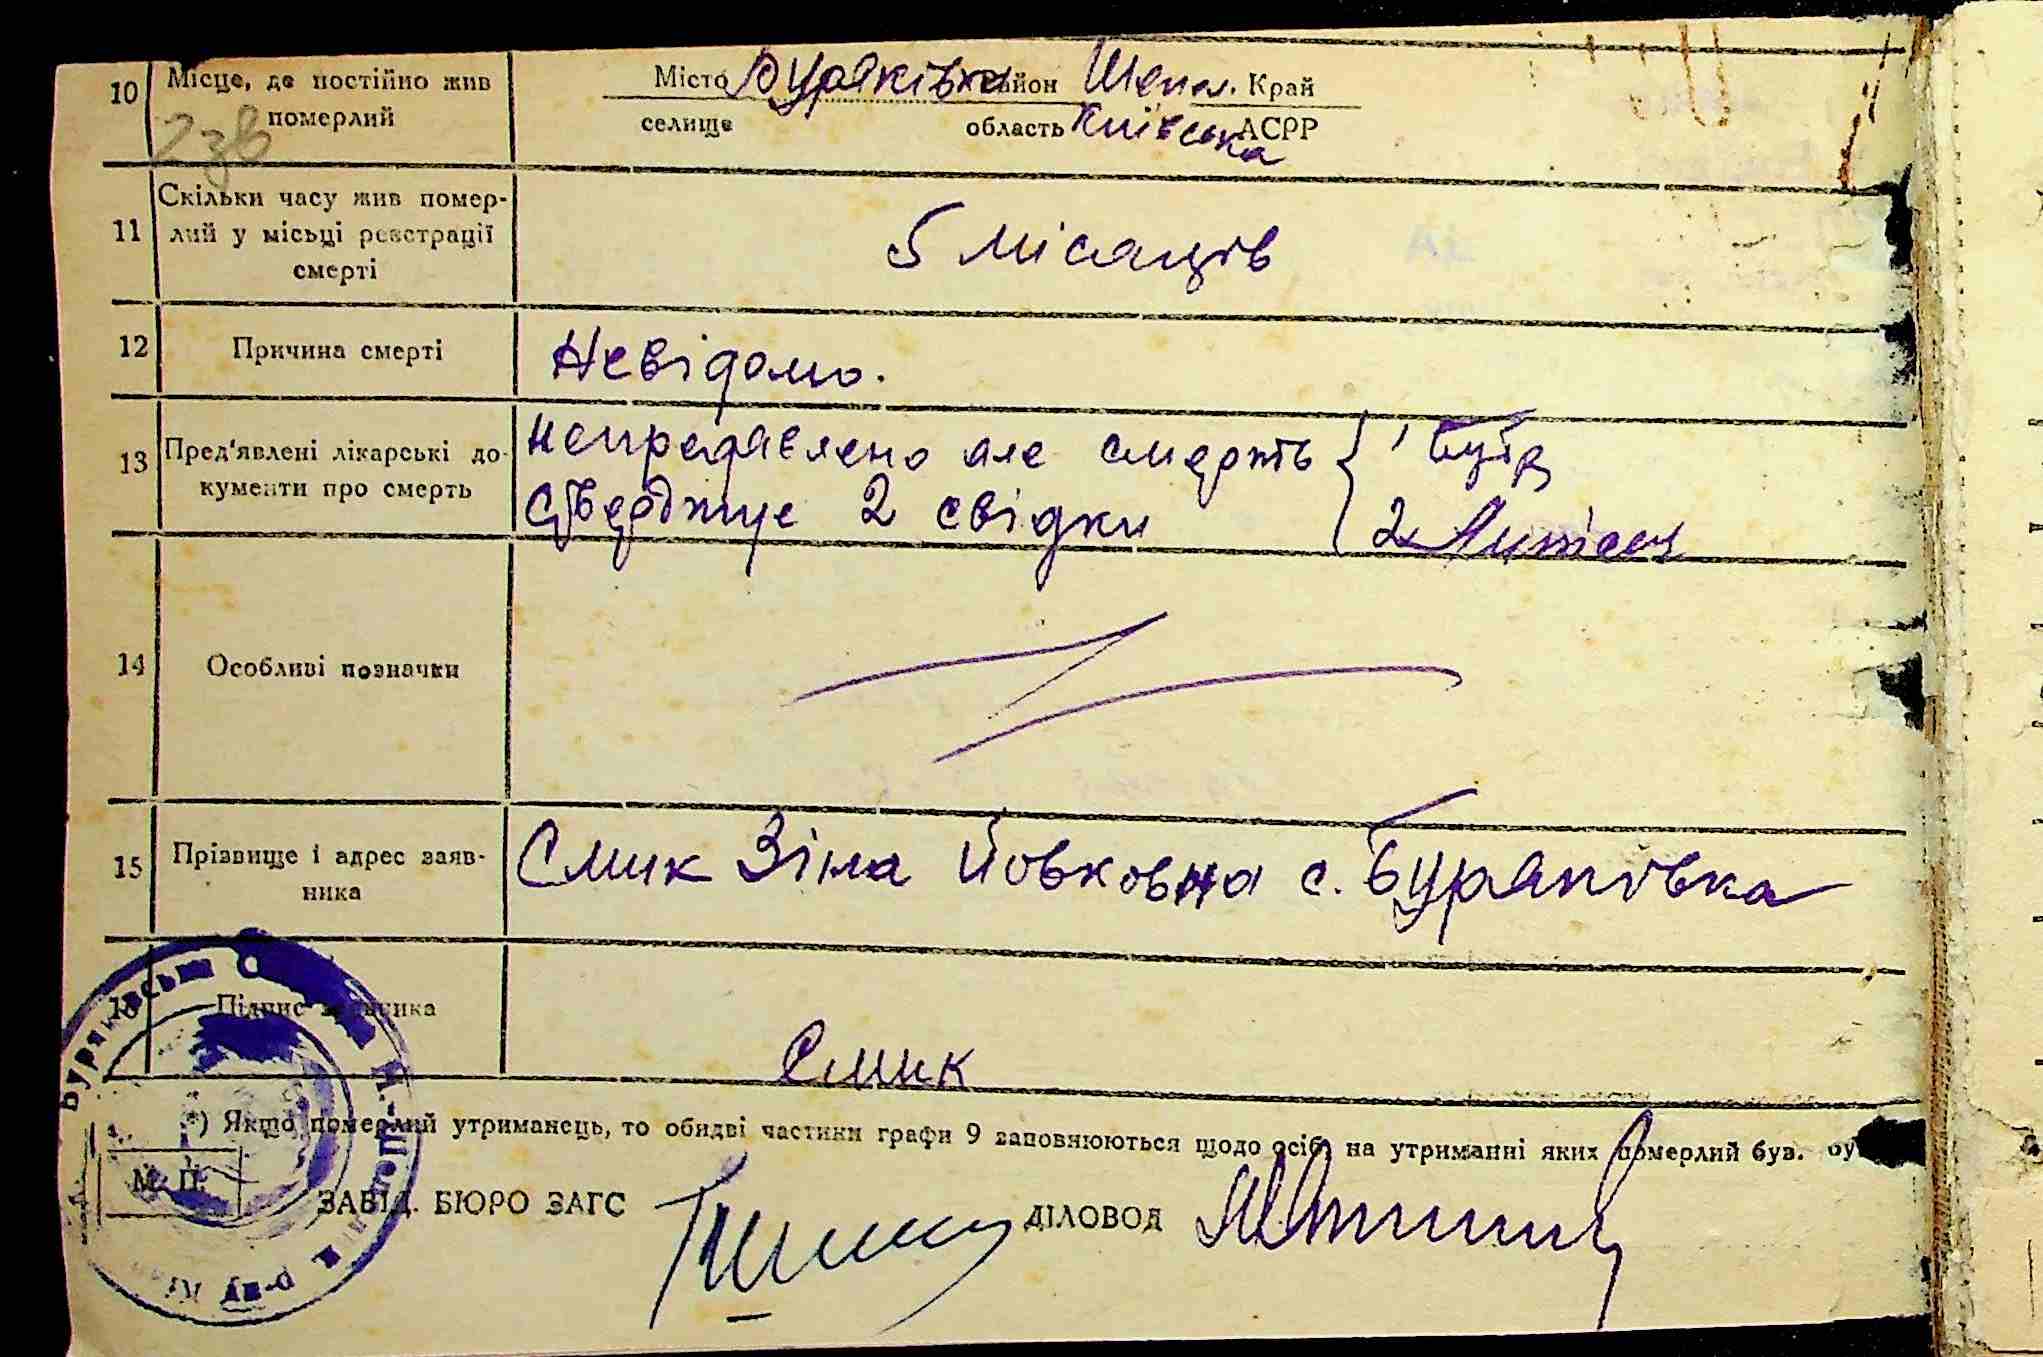 10 Місце, де постійно жив Місто Буряківка район Шепел. Край
померлий селище область Київська АСРР
2зв
11 Скільки часу жив помер-
лий у місьці реєстрації
смерті
5 місяців
12 Причина смерті Невідомо.
13 Пред'явлені лікарські до-
кументи про смерть
непредявлено але смерть { 1
стверджує 2 свідки 2
14 Особливі позначки
15 Прізвище і адрес заяв-
ника
Смик Зіна Йовковна с. Буряківка
Підпис заявника
Смик
*) Якщо померлий утриманець, то обидві частини графи 9 заповнюються щодо осіб, на утриманні яких померлий був.
М. П.
ЗАВІД. БЮРО ЗАГС ДІЛОВОД
Буряковська
р-ну